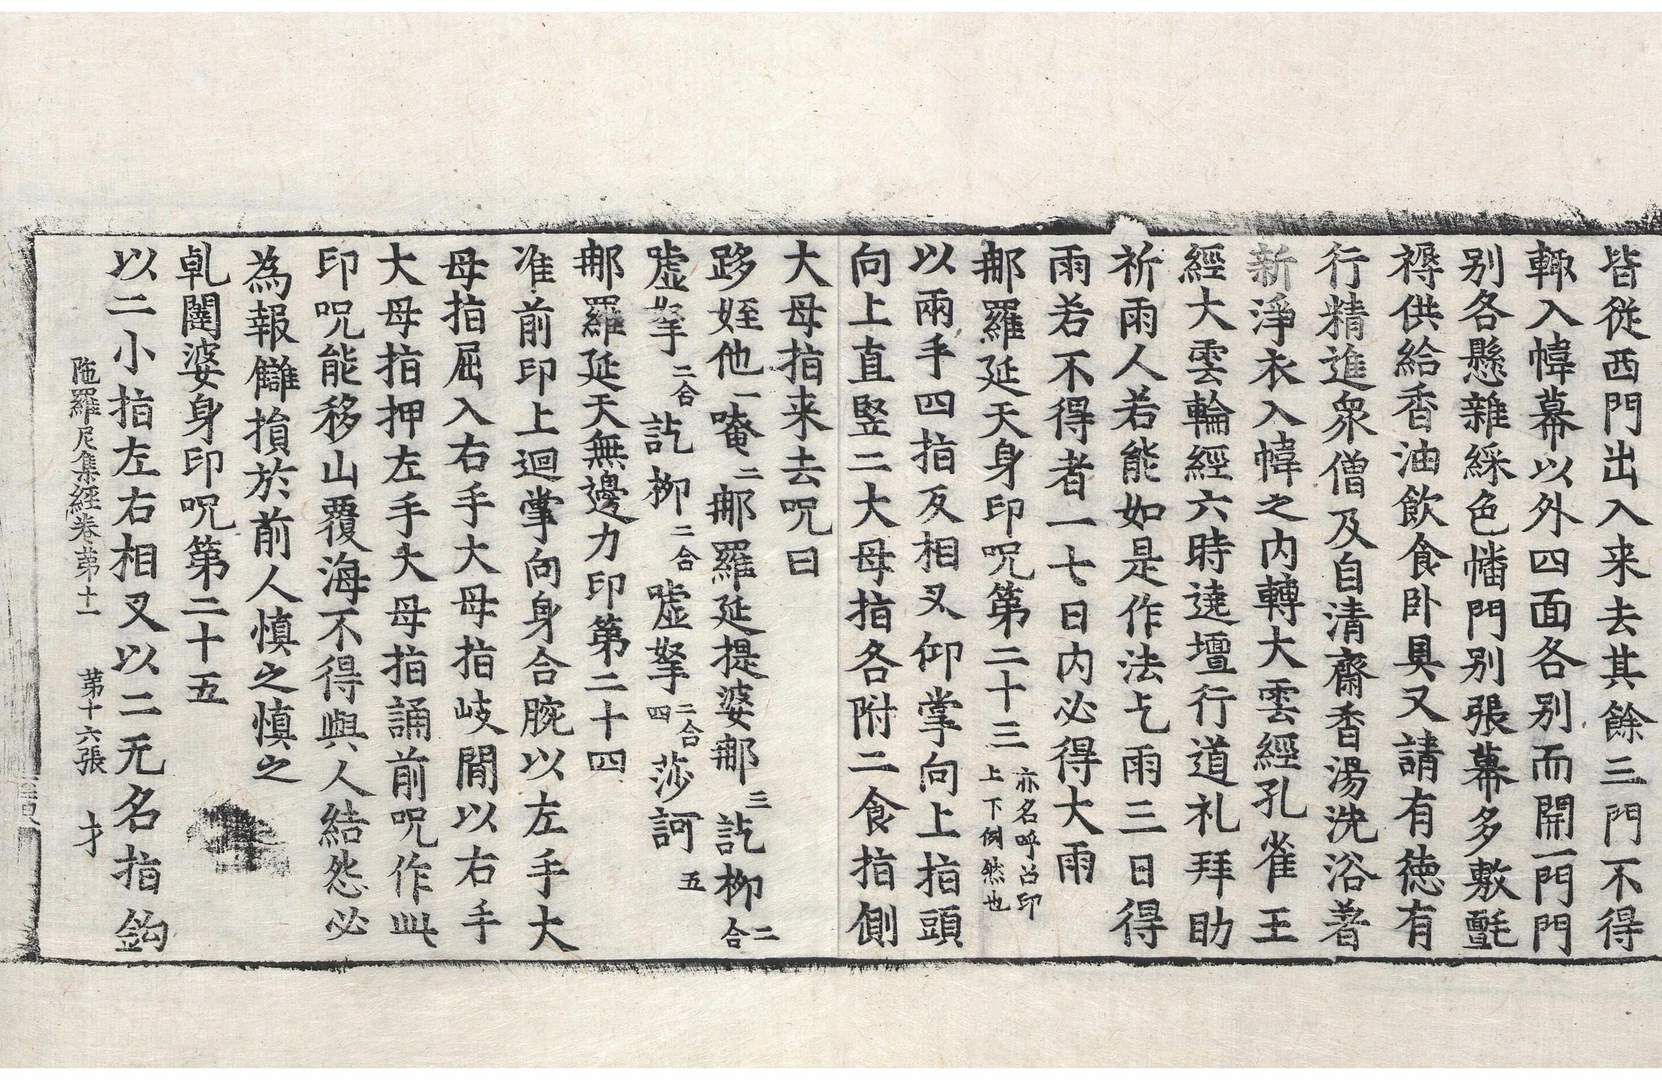 皆從西門出入来去其餘三門不得
輙入幃幕以外四面各别而開一門門
别各懸雜綵色幡門别張幕多敷氎
褥供給香油飲食卧具又請有德有
行精進衆僧及自清齋香湯洗浴著
新淨衣入幃之内轉大雲經孔雀王
經大雲輪經六時遶壇行道礼拜助
祈雨人若能如是作法乞雨三日得
雨若不得者一七日内必得大雨
那羅延天身印呪第二十三亦名呼召印上下例然也
以兩手四指反相叉仰掌向上指頭
向上直竪二大母指各附二食指側
大母指来去呪曰
跢姪他一唵二那羅延提婆那三訖柳二合
嘘拏二合訖柳二合嘘拏二合四莎訶五
那羅延天無邊力印第二十四
准前印上迴掌向身合腕以左手大
母指屈入右手大母指岐間以右手
大母指押左手大母指誦前呪作此
印呪能移山覆海不得與人結怨必
為報讎損於前人慎之慎之
乹闥婆身印呪第二十五
陁羅尼集經卷苐十一 苐十六張 才
以二小指左右相叉以二无名指鈎